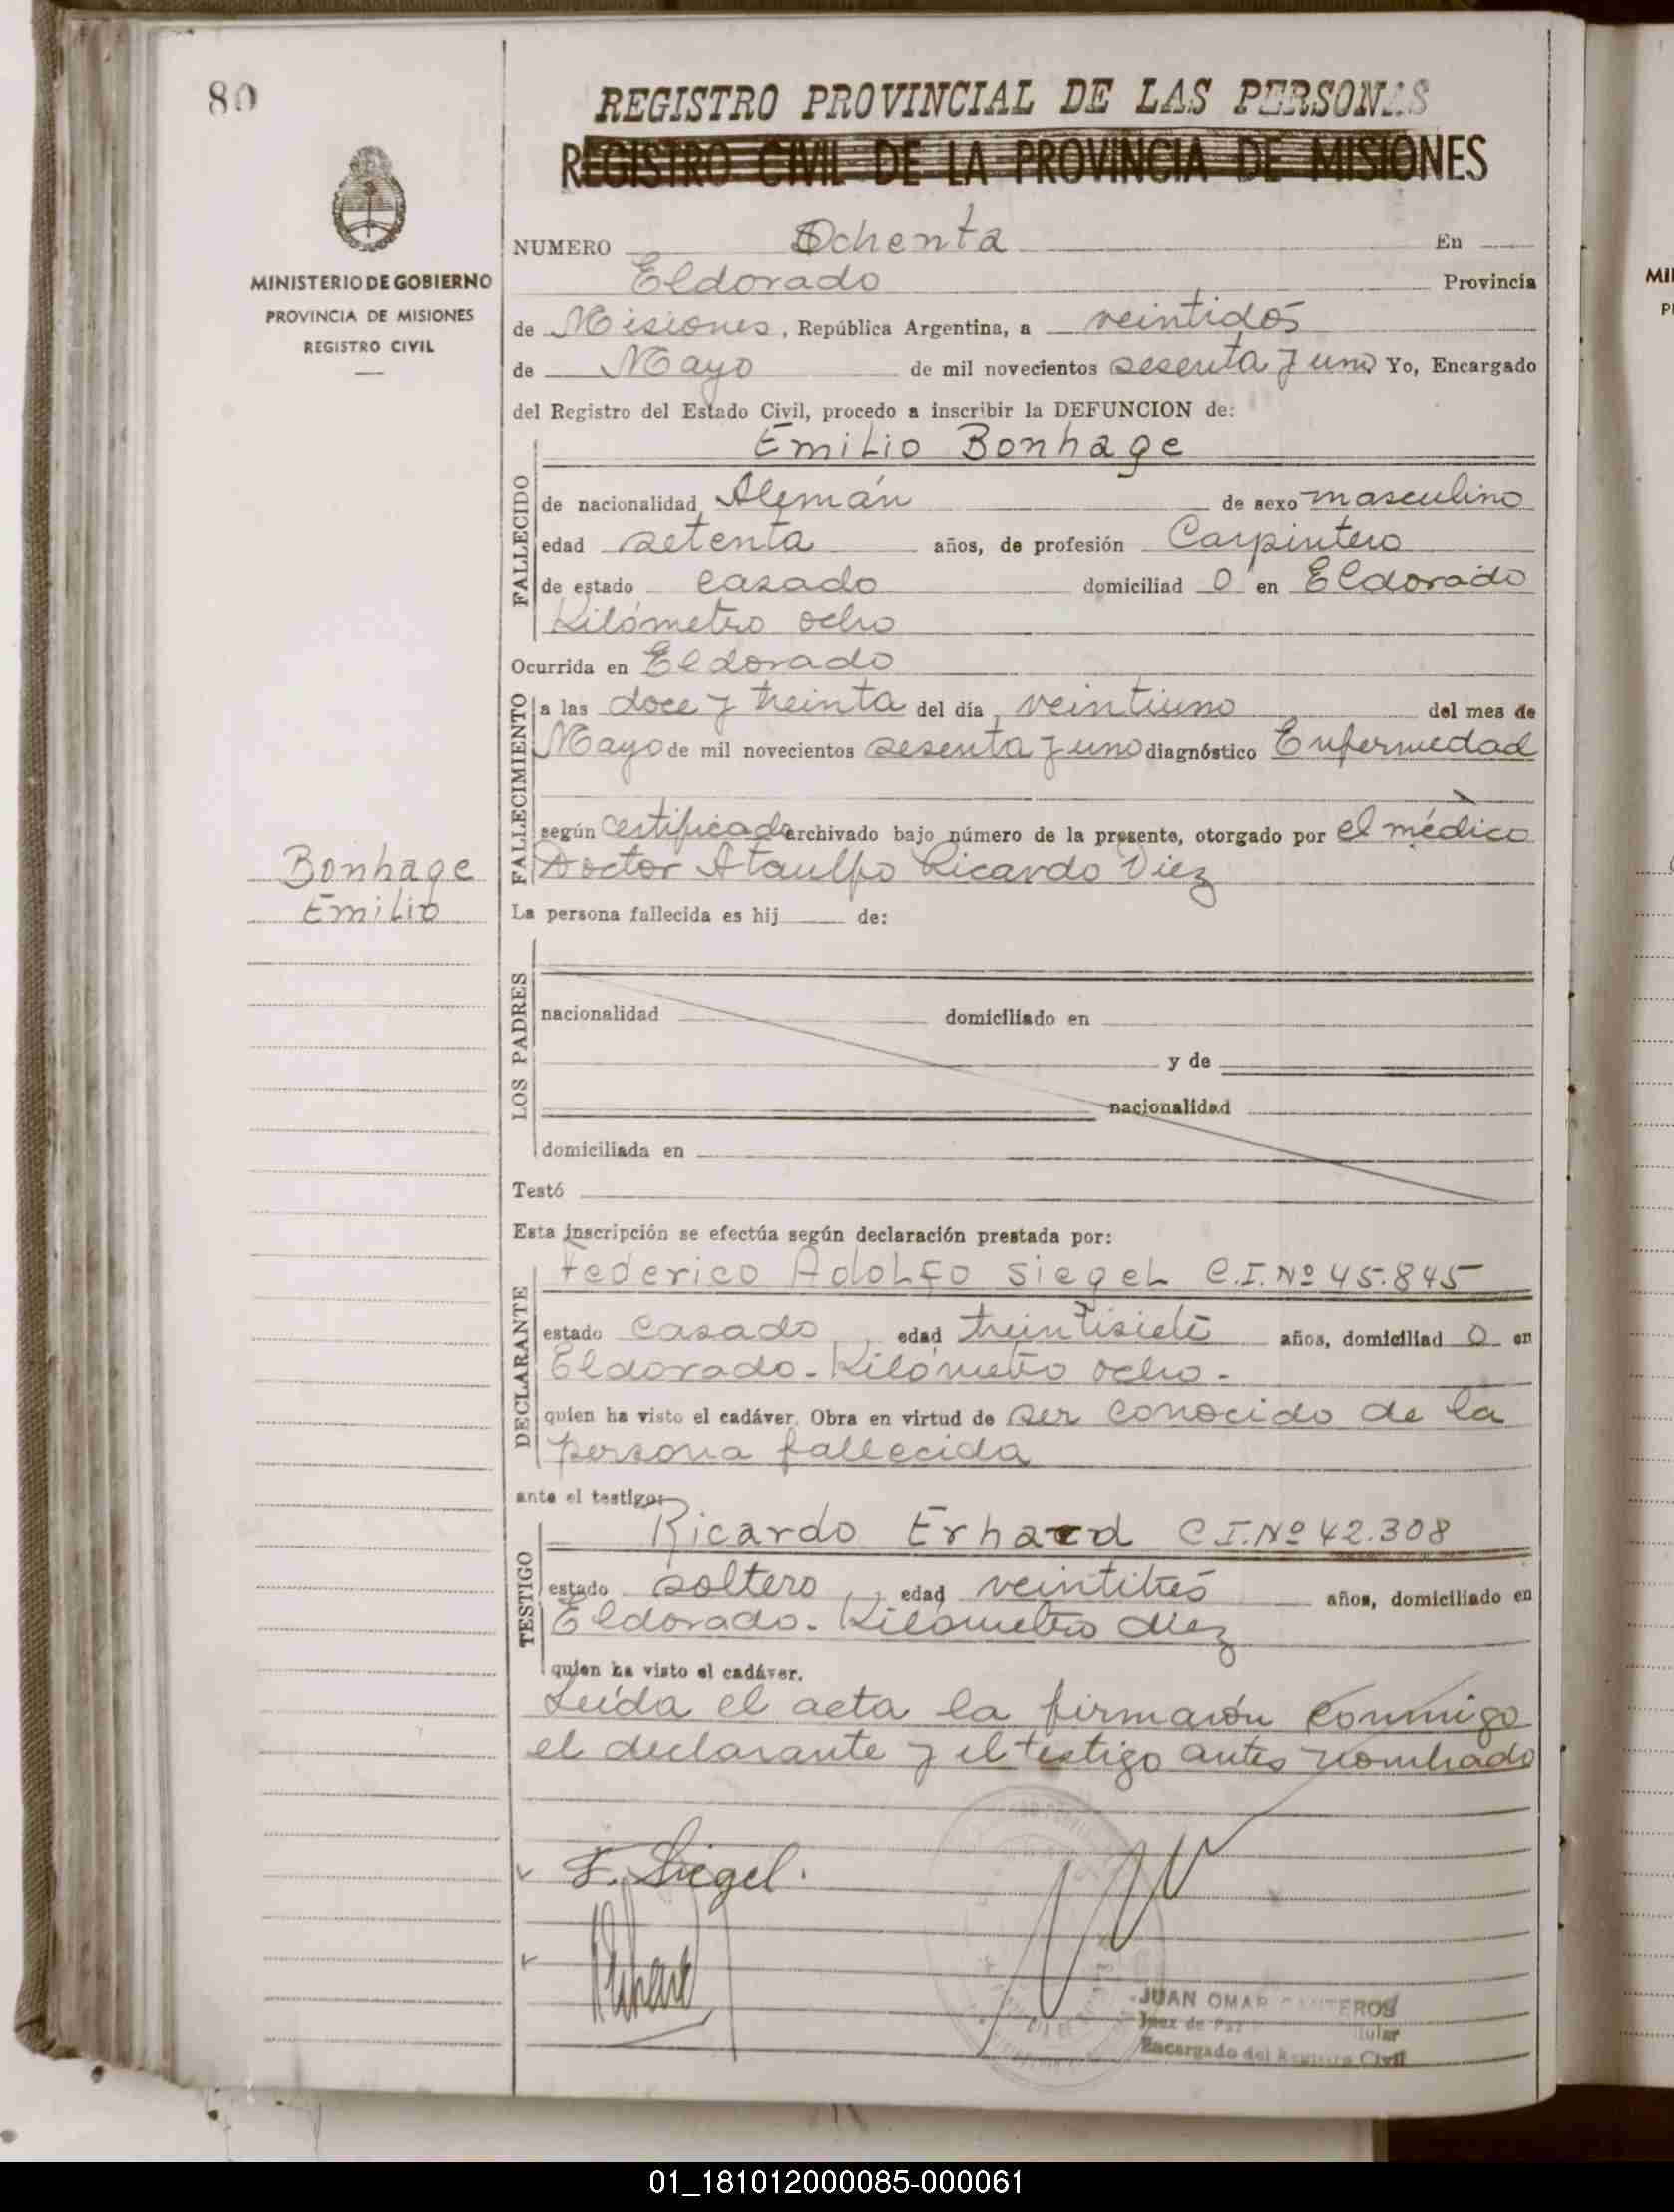 80
REGISTRO PROVINCIAL DE LAS PERSONAS
REGISTRO CIVIL DE LA PROVINCIA DE MISIONES
MINISTERIO DE GOBIERNO
PROVINCIA DE MISIONES
REGISTRO CIVIL
NUMERO Ochenta En
Eldorado Provincia
de Misiones, República Argentina, a veintidós
de Mayo de mil novecientos sesenta y uno Yo, Encargado
del Registro del Estado Civil, procedo a inscribir la DEFUNCION de:
FALLECIDO
Emilio Bonhage
de nacionalidad Alemán de sexo masculino
edad setenta años, de profesión Carpintero
de estado casado domiciliad o en Eldorado
Kilómetro ocho
Ocurrida en Eldorado
FALLECIMIENTO
a las doce y treinta del día veintiuno del mes de
Mayo de mil novecientos sesenta y uno diagnóstico Enfermedad
según certificado archivado bajo número de la presente, otorgado por el médico
Doctor Ataulfo Ricardo Diez
Bonhage
Emilio
La persona fallecida es hij de:
LOS PADRES
nacionalidad domiciliado en
y de
nacionalidad
domiciliada en
Testó
Esta inscripción se efectúa según declaración prestada por:
DECLARANTE
Federico Adolfo Siegel C.I. Nº 45.845
estado casado, edad treintisiete años, domiciliad o en
Eldorado - Kilómetro ocho -
quien ha visto el cadáver. Obra en virtud de ser conocido de la
persona fallecida
ante el testigo:
TESTIGO
Ricardo Erhard C.I. Nº 42.308
estado soltero, edad veintitrés años, domiciliado en
Eldorado - Kilómetro diez
quien ha visto el cadáver.
Leída el acta la firmarón conmigo
el declarante y el testigo antes nombrado
F. Siegel.
JUAN OMAR
Juez de Paz Titular
Encargado del Registro Civil
01_181012000085-000061